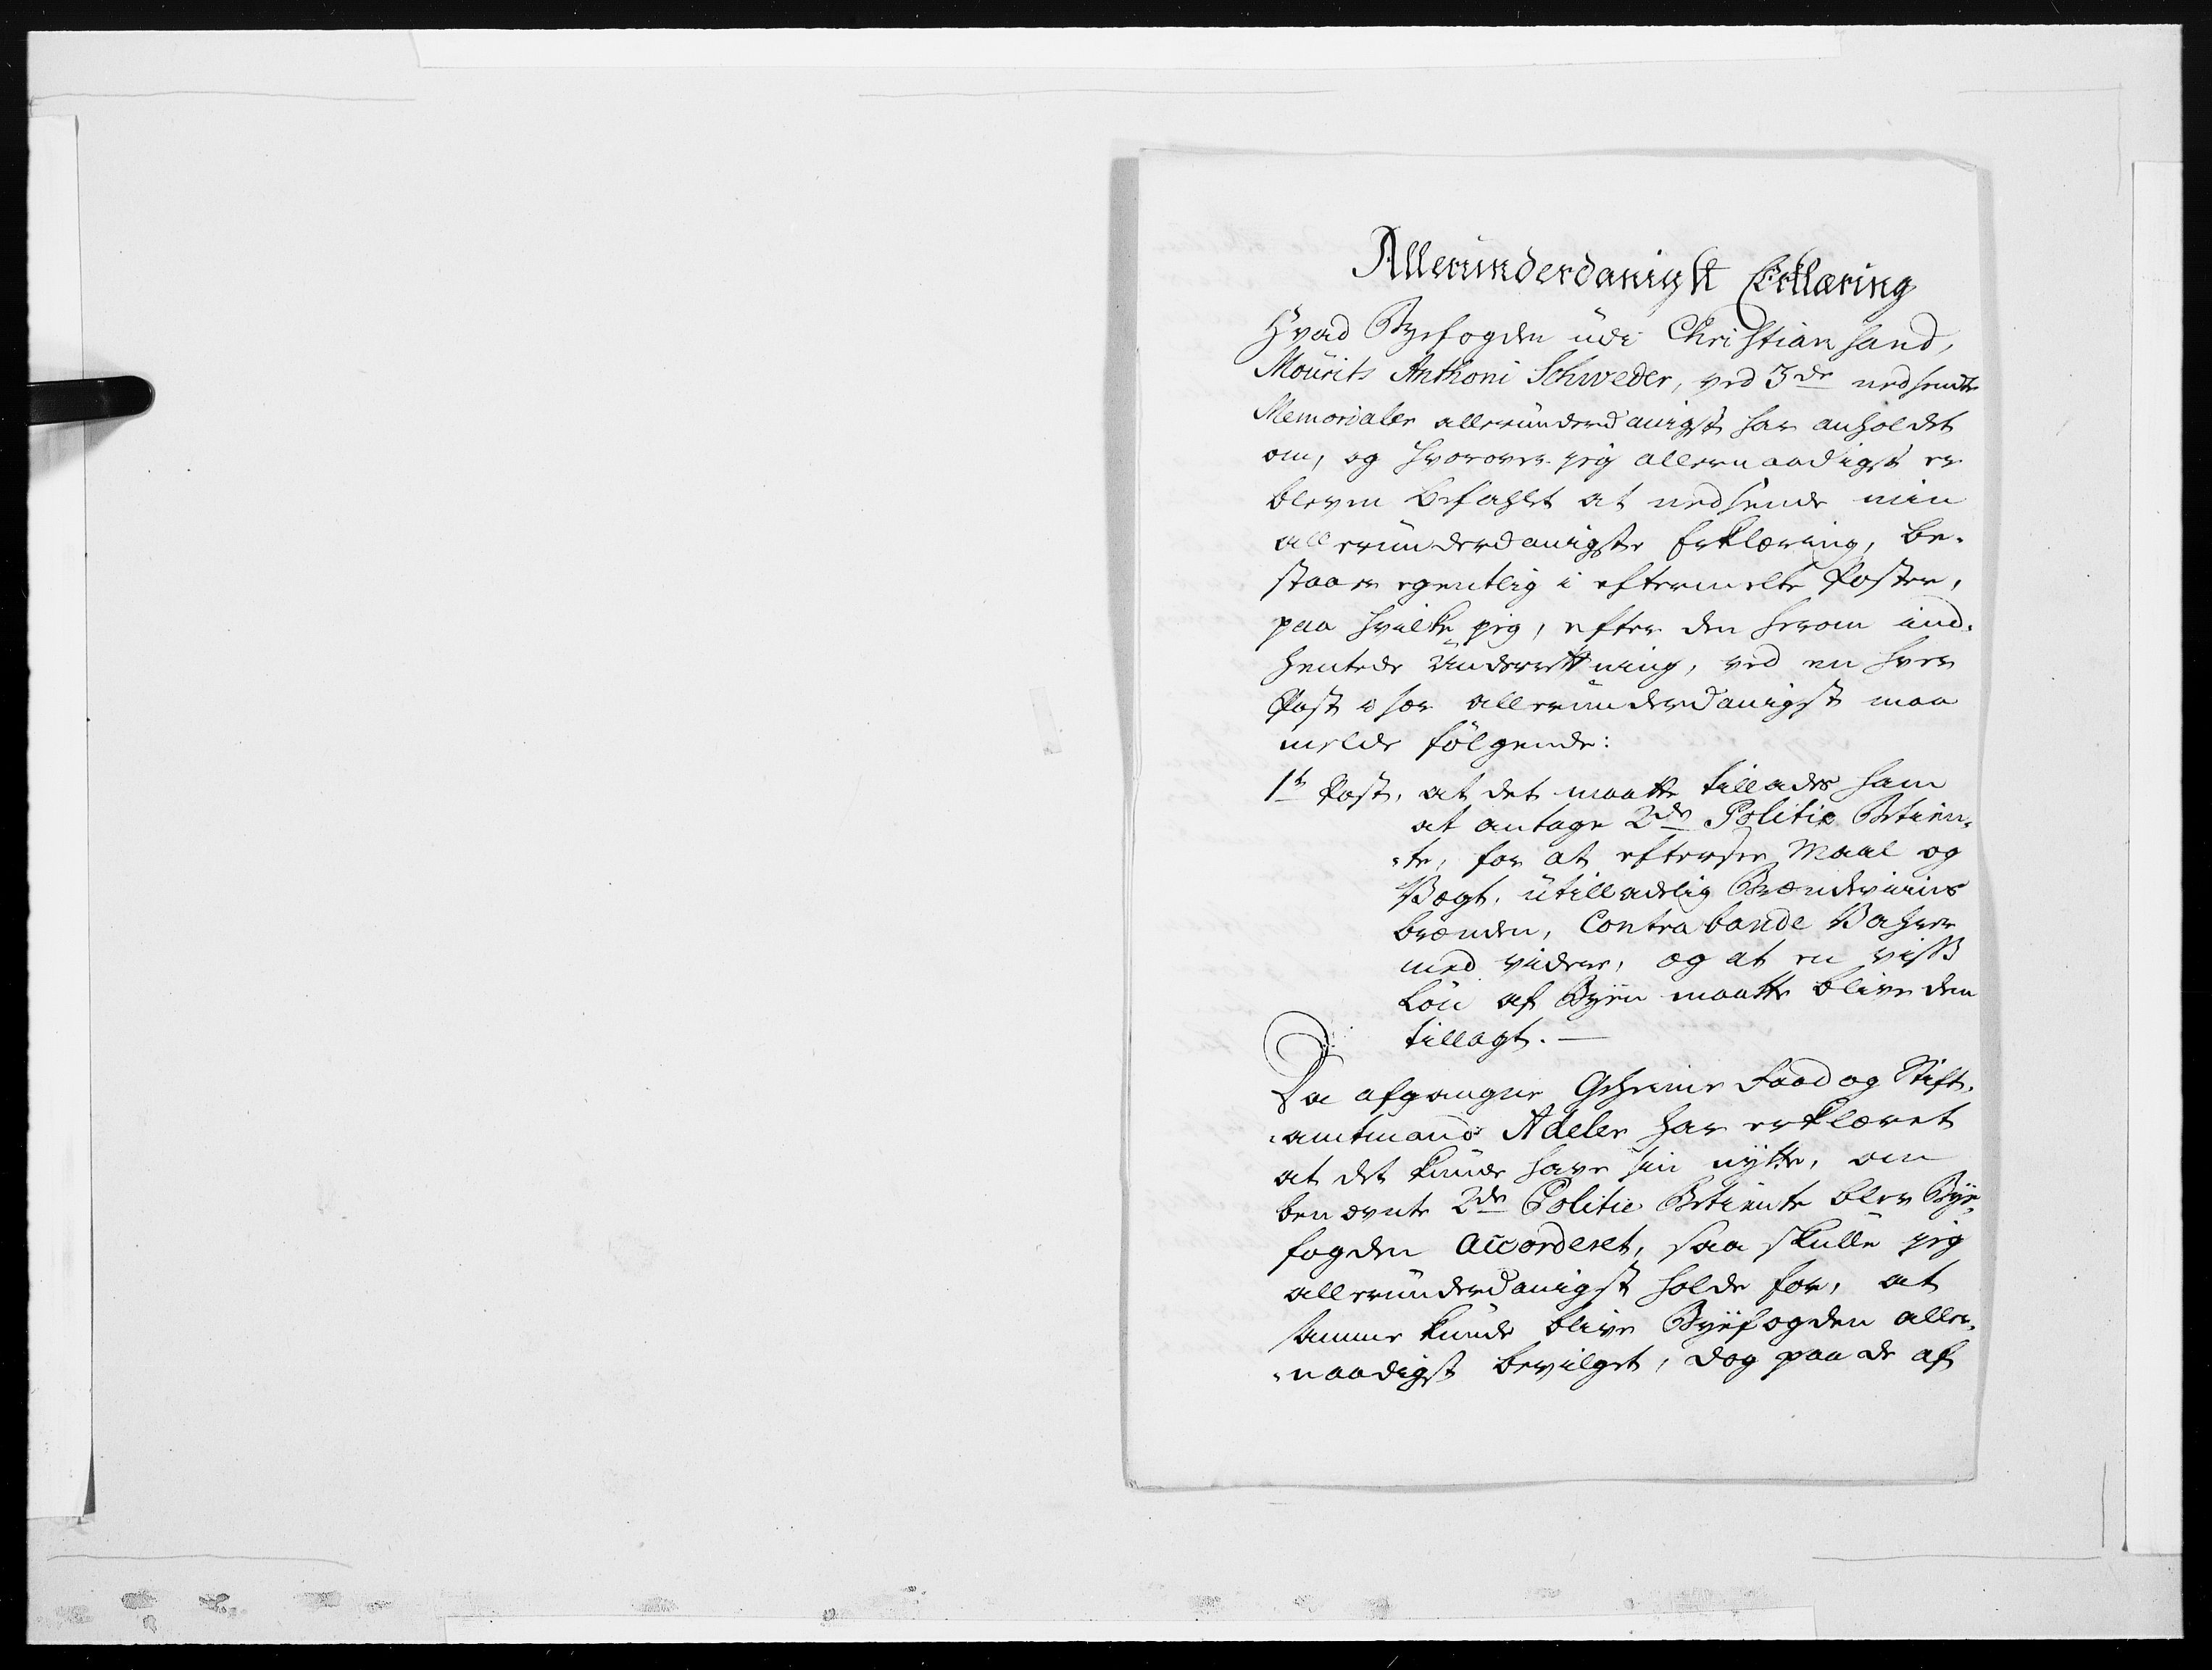 Allerunderdanigst Erklæring
Hvad Byefogden udi Christiansand,
Mourits Anthoni Schweder, ved 3de nedsendte
Memorialer allerunderdanigst har anholdet
om, og hvorover jeg allernaadigst er
bleven befahlet at nedsende min
allerunderdanigste Erklæring, be-
staaer egentlig i eftermelte Poster,
paa hvilke jeg, efter den herom ind-
hentede Underrettning, ved en hver
Post i sær allerunderdanigst maa
melde følgende:
1te Post, at det maatte tillades ham
at antage 2de Politie Betien-
-te, for at eftersee Maal og
Vægt, utilladelig Brændeviins
brænden, Contrabande Vahrer
med videre, og at en viss
Løn af Byen maatte blive dem
tillagt. —
Da afgangne Geheime Raad og Stift-
-amtmand Adeler har erklæret
at det kunde have sin nytte, om
benævnte 2de Politie Betiente blev Bye-
fogden accorderet, saa skulle jeg
allerunderdanigst holde for, at
samme kunde blive Byefogden aller-
-naadigst bevilget, dog paa de af